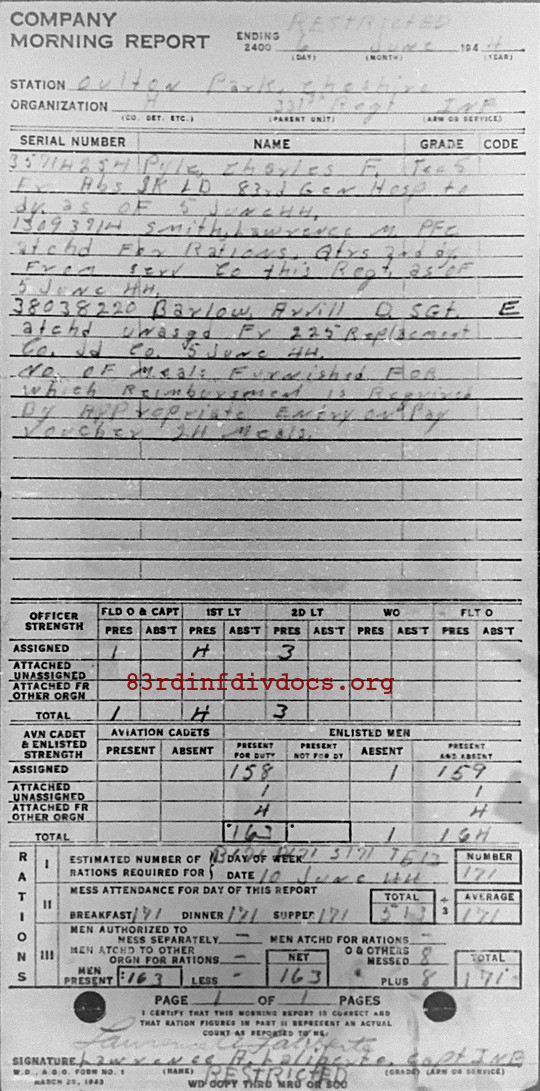 COMPANY
MORNING REPORT
RESTRICTED
ENDING
2400 6 June 1944
(DAY) (MONTH) (YEAR)
STATION Oulton Park, Cheshire
ORGANIZATION H 331st Regt INF
(CO. DET. ETC.) (PARENT UNIT) (ARM OR SERVICE)
SERIAL NUMBER NAME GRADE CODE
35714254 Pyle, Charles F. Tec5
Fr Abs SK LD 83rd Gen Hosp to
dy. as of 5 June 44.
13093914 Smith, Lawrence M. PFC
atchd For Rations, Qtrs and dy.
From Serv Co this Regt. as of
5 June 44.
38038220 Barlow, Arvill D. SGT. E
atchd unasgd Fr 225 Replacement
Co. Jd Co. 5 June 44.
No. of Meals Furnished For
Which Reimbursement is Required
By Appropriate Entry on Pay
Voucher 24 Meals.
OFFICER STRENGTH FLD O & CAPT 1ST LT 2D LT WO FLT O
PRES ABS'T PRES ABS'T PRES ABS'T PRES ABS'T PRES ABS'T
ASSIGNED 1 4 3
ATTACHED UNASSIGNED
ATTACHED FR OTHER ORGN
83rdinfdivdocs.org
TOTAL 1 4 3
AVN CADET & ENLISTED STRENGTH AVIATION CADETS ENLISTED MEN
PRESENT ABSENT PRESENT FOR DUTY PRESENT NOT FOR DY ABSENT PRESENT AND ABSENT
ASSIGNED 158 1 159
ATTACHED UNASSIGNED 1 1
ATTACHED FR OTHER ORGN 4 4
TOTAL 163 1 164
RATIONS
I ESTIMATED NUMBER OF RATIONS REQUIRED FOR DAY OF WEEK B171 D171 S171 T513 NUMBER
DATE 10 June 44 171
II MESS ATTENDANCE FOR DAY OF THIS REPORT TOTAL ÷ 3 AVERAGE
BREAKFAST 171 DINNER 171 SUPPER 171 513 171
III MEN AUTHORIZED TO MESS SEPARATELY - MEN ATCHD FOR RATIONS -
MEN ATCHD TO OTHER ORGN FOR RATIONS - NET O & OTHERS MESSED 8 TOTAL
MEN PRESENT 163 LESS - 163 PLUS 8 171
PAGE 1 OF 1 PAGES
I CERTIFY THAT THIS MORNING REPORT IS CORRECT AND
THAT RATION FIGURES IN PART II REPRESENT AN ACTUAL
COUNT AS REPORTED TO ME:
SIGNATURE Lawrence A. Capt INF
(NAME) (GRADE) (ARM OR SERVICE)
W.D., A.G.O. FORM NO. 1
MARCH 25, 1943
RESTRICTED
WD COPY THRU MRU OR SOC